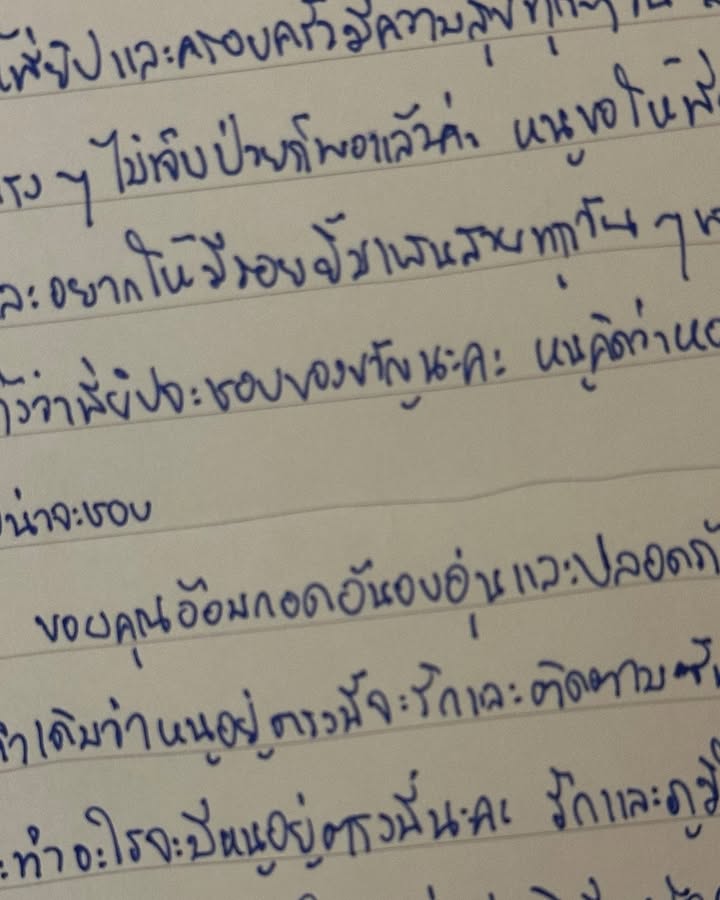 พี่ยิปและครอบครัวมีความสุขทุกๆ
ๆ ไม่เจ็บป่วยก็พอแล้วค่ะ หนูขอให้พี่
ละอยากให้มีรอยยิ้มแสนสวยทุกวัน ๆ
ว่าพี่ยิปจะชอบของขวัญนะคะ หนูคิดว่า
น่าจะชอบ
ขอบคุณอ้อมกอดอันอบอุ่นและปลอดภั
เดิมว่าหนูอยู่ตรงนี้จะรักและติดตาม
ะทำอะไรจะมีหนูอยู่ตรงนี้นะคะ รักและภูมิ